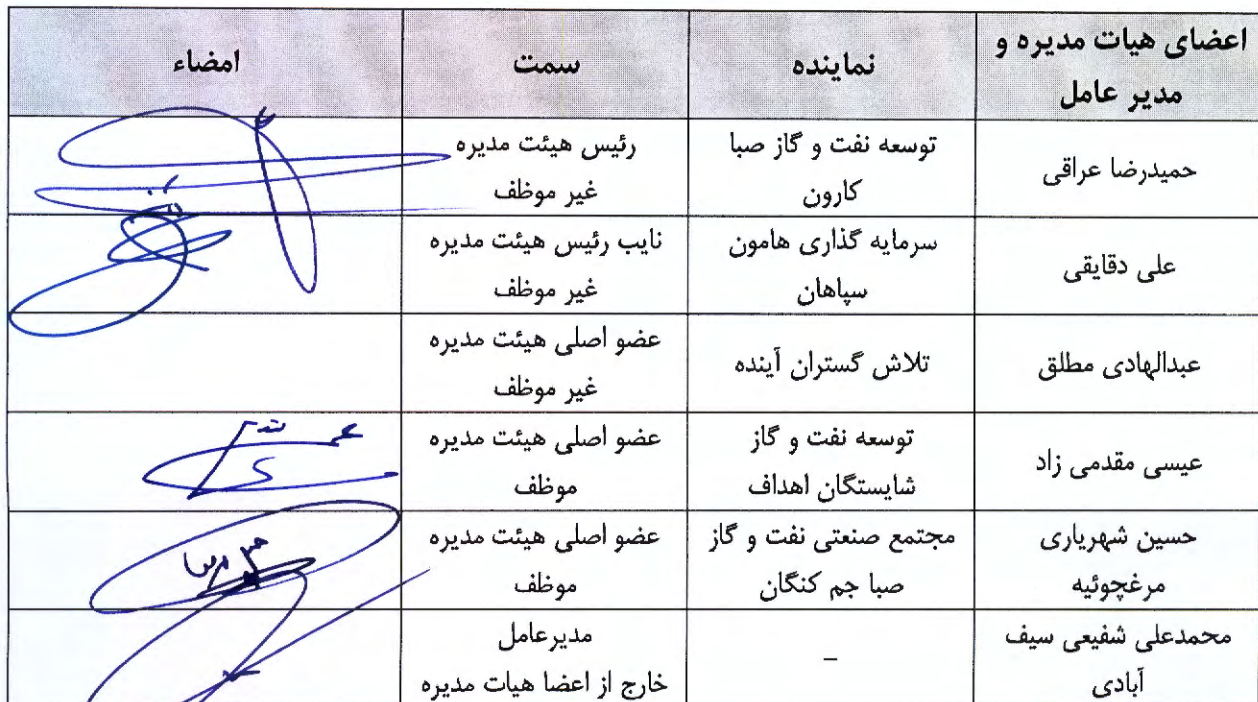 اعضای هیات مدیره و
مدیر عامل
نماینده
سمت
امضاء
حمیدرضا عراقی
توسعه نفت و گاز صبا
کارون
رئیس هیئت مدیره
غیر موظف
علی دقایقی
سرمایه گذاری هامون
سپاهان
نایب رئیس هیئت مدیره
غیر موظف
عبدالهادی مطلق
تلاش گستران آینده
عضو اصلی هیئت مدیره
غیر موظف
عیسی مقدمی زاد
توسعه نفت و گاز
شایستگان اهداف
عضو اصلی هیئت مدیره
موظف
حسین شهریاری
مرغچوئیه
مجتمع صنعتی نفت و گاز
صبا جم کنگان
عضو اصلی هیئت مدیره
موظف
محمدعلی شفیعی سیف
آبادی
–
مدیرعامل
خارج از اعضا هیات مدیره